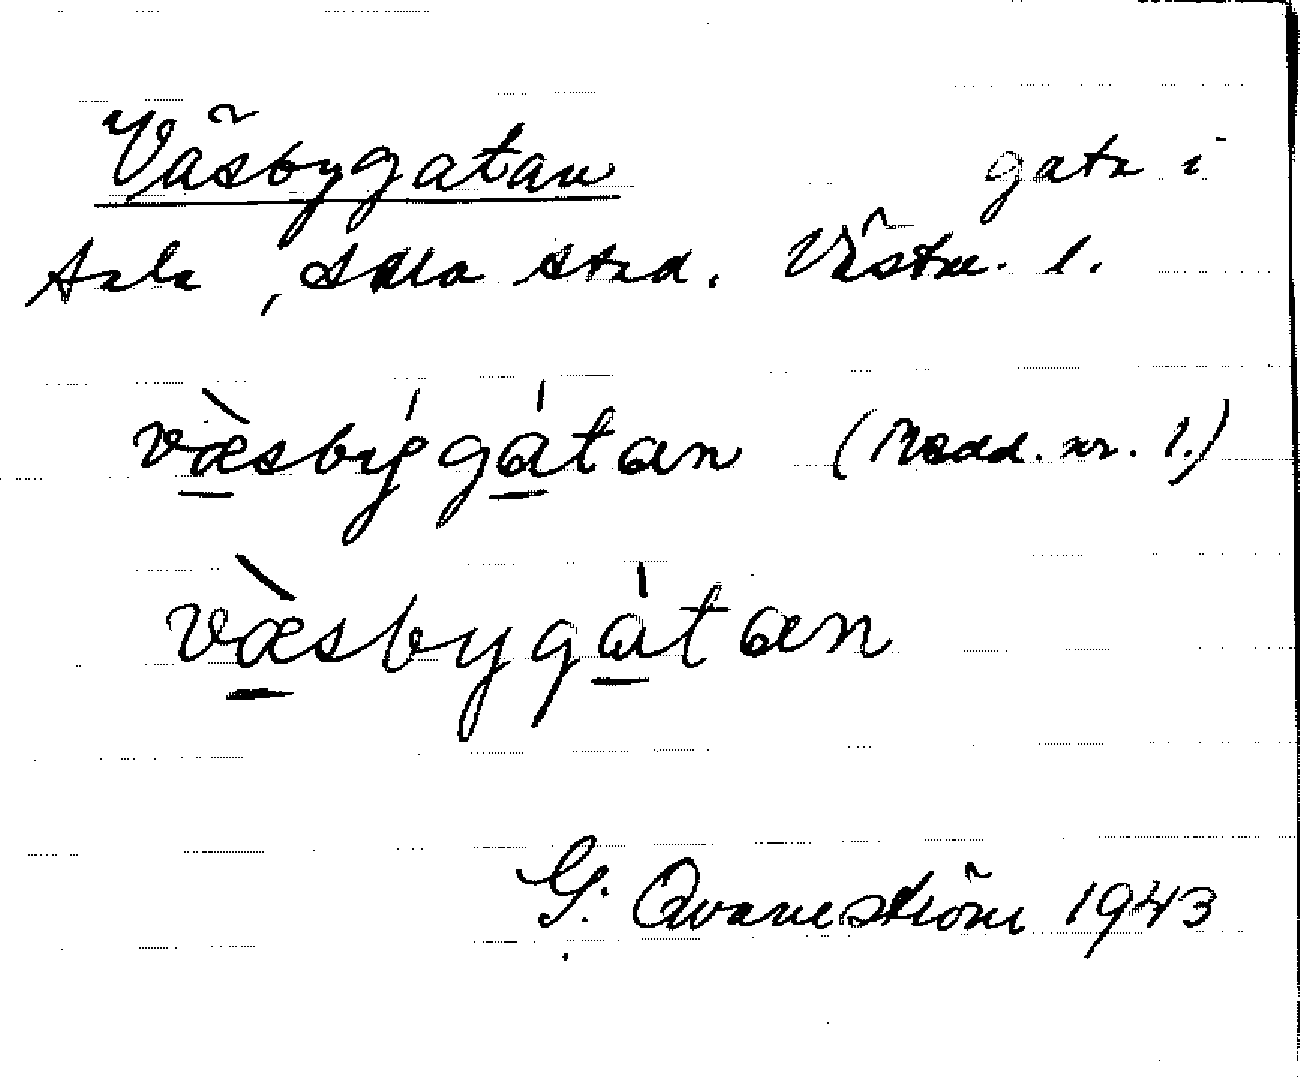 Väsbygatan gata i
Sala, Sala stad. Västm. l.
væ̀sbýgátan (Medd. nr. 1.)
væ̀sbygátan
G. Qvarnström 1943